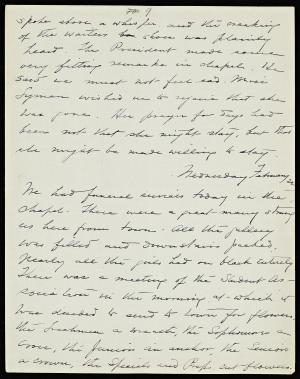 spoke above a whisper, and the creaking
of the waiters shoes was plainly
heard. The President made some
very fitting remarks in chapel. He
said we must not feel sad. Miss
Lyman wished us to rejoice that she
was gone. Her prayer for days had
been not that she might stay, but that
she might be made willing to stay.
Wednesday February
We had funeral services today in the
chapel. There were a great many strang
ers here from town. All the gallery
was filled and downstairs packed.
Nearly all the girls had on black entirely
There was a meeting of the Student As-
sociation in the morning at which it
was decided to send to town for flowers
the Freshmen a wreath, the Sophomores a
Cross, the Juniors an anchor, the Seniors
a crown, the Specials and Preps. cut flowers.